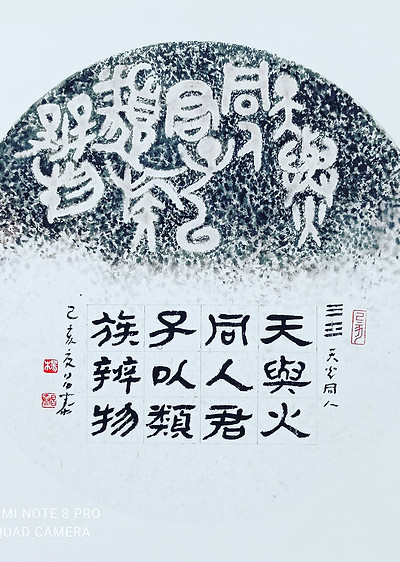 天與火
同人
君子以
類族
辨物
天火同人
天與火
同人君
子以類
族辨物
己亥
MI NOTE 8 PRO
QUAD CAMERA